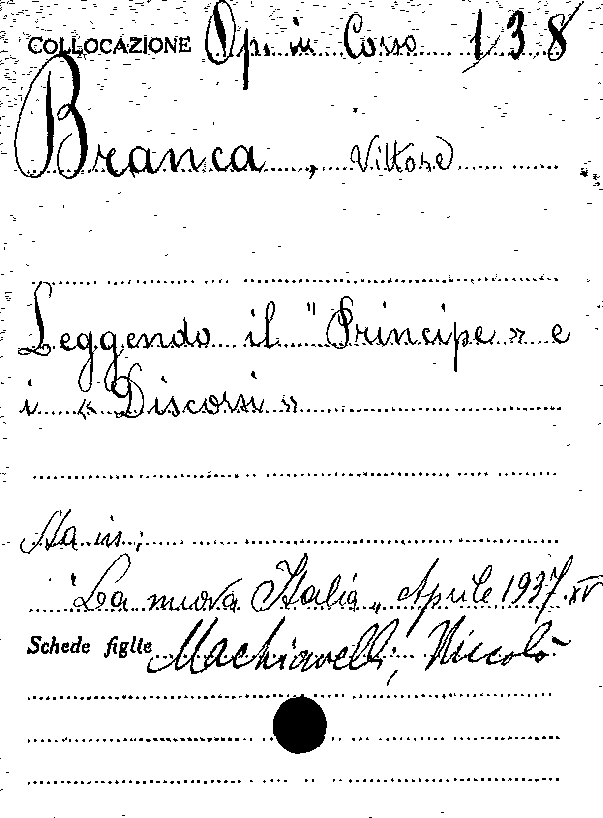 COLLOCAZIONE Op. in Corso 138
Branca, Vittore
Leggendo il "Principe» e
i «Discorsi»
Sta in:
"La nuova Italia„ Aprile 1937. XV
Schede figlie Machiavelli, Niccolò